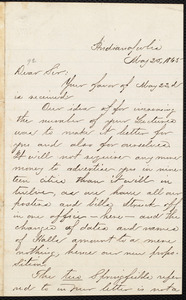 Indianapolis
May 25, 1865
Dear Sir:
Your favor of May 22d
is received
Our idea of increasing
the number of your Lectures
was to make it better for
you and also for ourselves
It will not require any more
money to advertise you in nine
teen cities than it would in
twelve, as we have all our
posters and bills struck off
in one office — here — and the
changes of dates and names
of Halls amount to a mere
nothing, hence our new propo
sition.
The two Springfields referred
to in our letter is not a